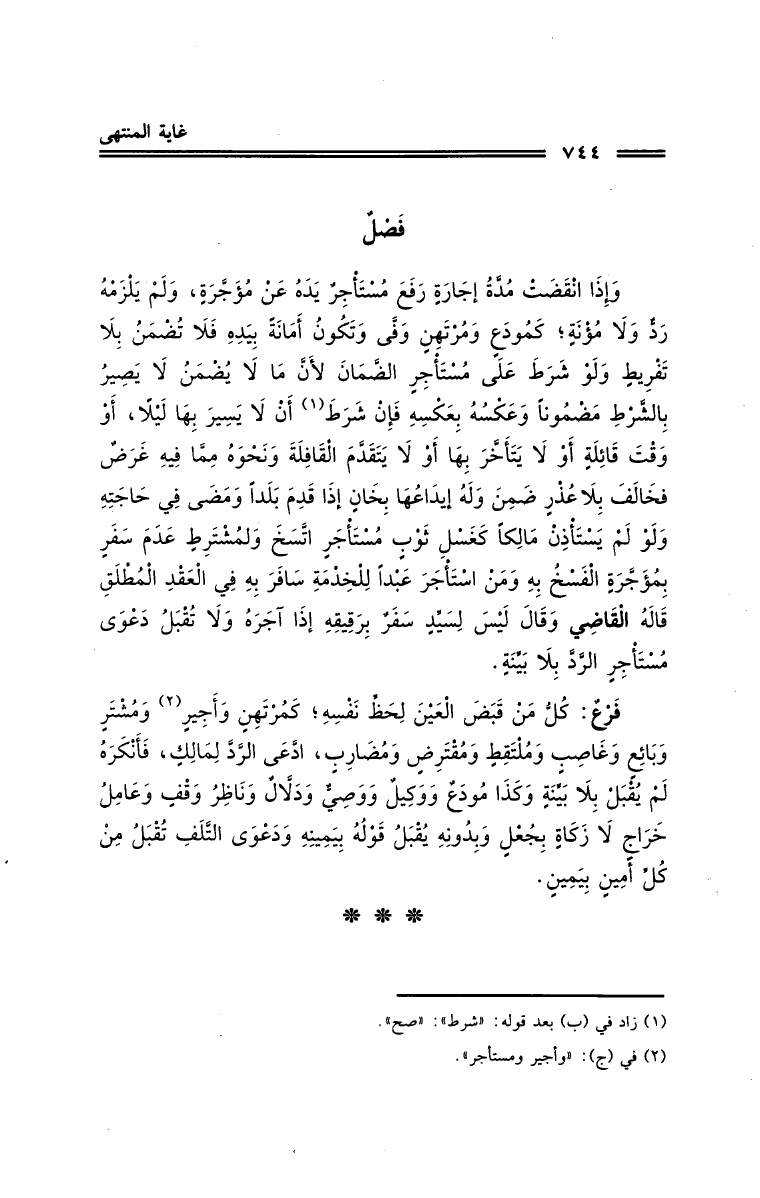 غاية المنتهى
٧٤٤
فَصْلٌ
وَإِذَا انْقَضَتْ مُدَّةُ إجَارَةٍ رَفَعَ مُسْتَأْجِرٌ يَدَهُ عَنْ مُؤَجَّرَةٍ، وَلَمْ يَلْزَمْهُ
رَدٌّ وَلَا مُؤْنَةٍ؛ كَمُودَعٍ وَمُرْتَهِنٍ وَفَّى وَتَكُونُ أَمَانَةً بِيَدِهِ فَلَا تُضْمَنُ بِلَا
تَفْرِيطٍ وَلَوْ شَرَطَ عَلَى مُسْتَأْجِرٍ الضَّمَانَ لأَنَّ مَا لَا يُضْمَنُ لَا يَصِيرُ
بِالشَّرْطِ مَضْمُوناً وَعَكْسُهُ بِعَكْسِهِ فَإِنْ شَرَطَ(١) أَنْ لَا يَسِيرَ بِهَا لَيْلًا، أَوْ
وَقْتَ قَائِلَةٍ أَوْ لَا يَتَأَخَّرَ بِهَا أَوْ لَا يَتَقَدَّمَ الْقَافِلَةَ وَنَحْوَهُ مِمَّا فِيهِ غَرَضٌ
فَخَالَفَ بِلَا عُذْرٍ ضَمِنَ وَلَهُ إيدَاعُهَا بِخَانٍ إذَا قَدِمَ بَلَداً وَمَضَى فِي حَاجَتِهِ
وَلَوْ لَمْ يَسْتَأْذِنْ مَالِكاً كَغَسْلِ ثَوْبٍ مُسْتَأْجَرٍ اتَّسَخَ وَلمُشْتَرِطٍ عَدَمَ سَفَرٍ
بِمُؤَجَّرَةٍ الْفَسْخُ بِهِ وَمَنْ اسْتَأْجَرَ عَبْداً لِلْخِدْمَةِ سَافَرَ بِهِ فِي الْعَقْدِ الْمُطْلَقِ
قَالَهُ الْقَاضِي وَقَالَ لَيْسَ لِسَيِّدٍ سَفَرٌ بِرَقِيقِهِ إذَا آجَرَهُ وَلَا تُقْبَلُ دَعْوَى
مُسْتَأْجِرٍ الرَّدَّ بِلَا بَيِّنَةٍ.
فَرْعٌ: كُلُّ مَنْ قَبَضَ الْعَيْنَ لِحَظِّ نَفْسِهِ؛ كَمُرْتَهِنٍ وَأَجِيرٍ(٢) وَمُشْتَرٍ
وَبَائِعٍ وَغَاصِبٍ وَمُلْتَقِطٍ وَمُقْتَرِضٍ وَمُضَارِبٍ، ادَّعَى الرَّدَّ لِمَالِكٍ، فَأَنْكَرَهُ
لَمْ يُقْبَلْ بِلَا بَيِّنَةٍ وَكَذَا مُودَعٌ وَوَكِيلٌ وَوَصِيٌّ وَدَلَّالٌ وَنَاظِرُ وَقْفٍ وَعَامِلُ
خَرَاجٍ لَا زَكَاةٍ بِجُعْلٍ وَبِدُونِهِ يُقْبَلُ قَوْلُهُ بِيَمِينِهِ وَدَعْوَى التَّلَفِ تُقْبَلُ مِنْ
كُلِّ أَمِينٍ بِيَمِينٍ.
* * *
(١) زاد في (ب) بعد قوله: «شرط»: «صح».
(٢) في (ج): «وأجير ومستأجر».